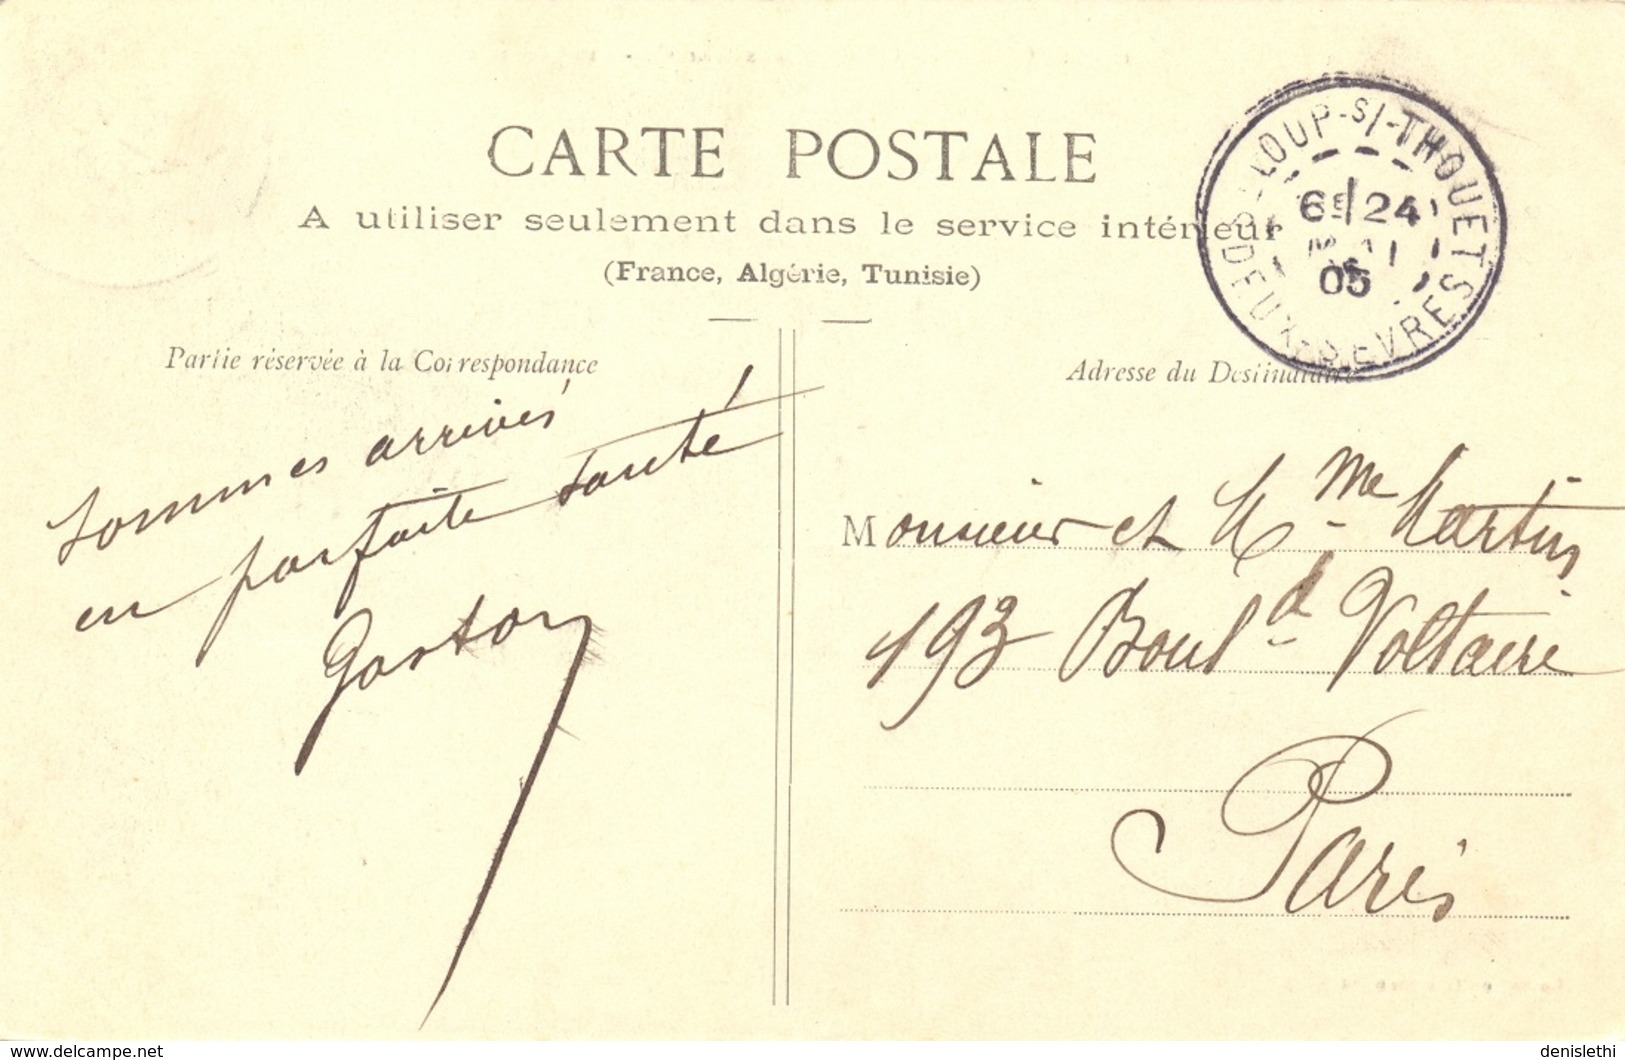 CARTE POSTALE
A utiliser seulement dans le service intérieur
(France, Algérie, Tunisie)
Partie réservée à la Correspondance
Sommes arrivés
en parfaite santé
Gaston
Adresse du Destinataire
Monsieur et Mme Martin
193 Bould Voltaire
Paris
ST-LOUP-S/-THOUET
6E/24
MAI
05
DEUX-SEVRES
www.delcampe.net
denislethi